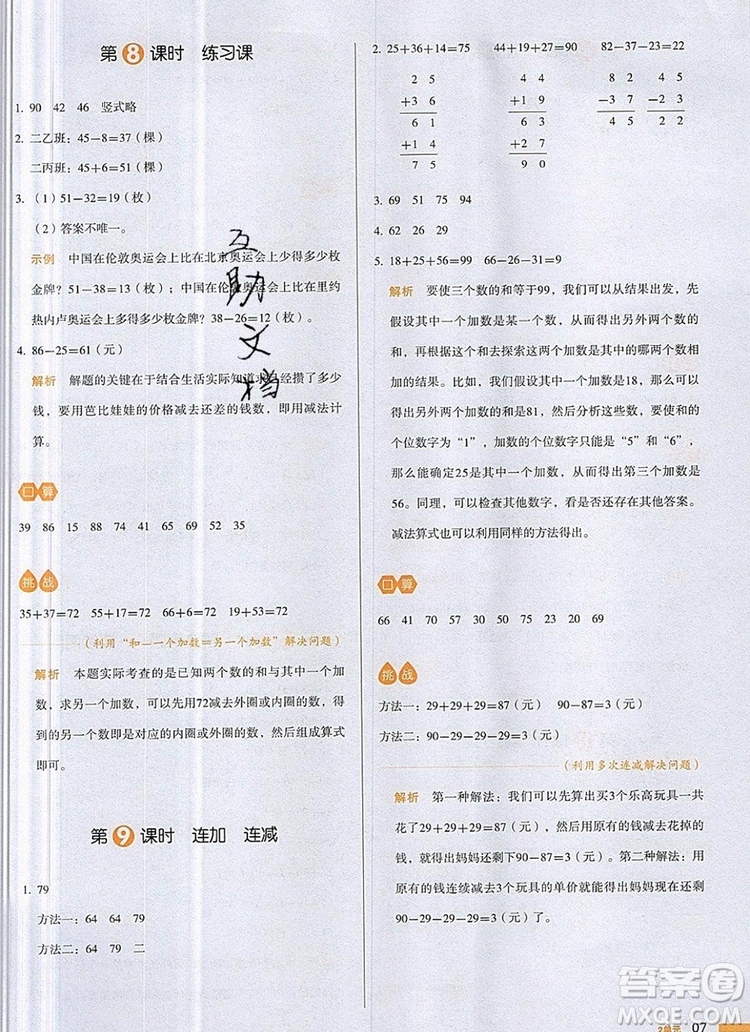 第8课时 练习课
1. 90 42 46 竖式略
2. 二乙班：45－8＝37（棵）
二丙班：45＋6＝51（棵）
3. （1）51－32＝19（枚）
（2）答案不唯一。
示例 中国在伦敦奥运会上比在北京奥运会上少得多少枚
金牌？51－38＝13（枚）；中国在伦敦奥运会上比在里约
热内卢奥运会上多得多少枚金牌？38－26＝12（枚）
4. 86－25＝61（元）
解析 解题的关键在于结合生活实际知道求已经攒了多少
钱，要用芭比娃娃的价格减去还差的钱数，即用减法计
算。
口算
39 86 15 88 74 41 65 69 52 35
挑战
35＋37＝72 55＋17＝72 66＋6＝72 19＋53＝72
（利用“和－一个加数＝另一个加数”解决问题）
解析 本题实际考查的是已知两个数的和与其中一个加
数，求另一个加数，可以用72减去外圈或内圈的数，得到
的另一个数即是对应的内圈或外圈的数，然后组成算式即
可。
第9课时 连加 连减
1. 79
方法一：64 64 79
方法二：64 79 二
互助文档
2. 25＋36＋14＝75 44＋19＋27＝90 82－37－23＝22
2 5 4 4 8 2 4 5
＋3 6 ＋1 9 －3 7 －2 3
6 1 6 3 4 5 2 2
＋1 4 ＋2 7
7 5 9 0
3. 69 51 75 94
4. 62 26 29
5. 18＋25＋56＝99 66－26－31＝9
解析 要使三个数的和等于99，我们可以从结果出发，先
假设其中一个加数是某一个数，那么就能得出另外两个数
的和，根据和再回去探索这两个加数可能是给出的数中的
哪两个数。比如，我们假设其中的一个加数是18，那么就
能得出另外两个加数的和是81，然后分析这些数，要使和的
个位数字为“1”，加数的个位数字只能是“5”和“6”，
那么能确定25是其中一个加数，则剩下的一个加数是
56。同理，可以检查其他数字，看看是否还存在其他答案。
减法算式也可以利用同样的方法得出。
口算
66 41 70 57 30 50 75 23 20 69
挑战
方法一：29＋29＋29＝87（元） 90－87＝3（元）
方法二：90－29－29－29＝3（元）
（利用多次连减解决问题）
解析 第一种解法：我们可以先算出买3个乐高玩具一共
花了29＋29＋29＝87（元），然后用原有的钱减去花掉的
钱，就得出妈妈还剩90－87＝3（元）。第二种解法：用
原有的钱连续减去3个玩具的单价就能得出妈妈还剩
90－29－29－29＝3（元）了。
2单元 07
答案圈
MXQE.COM